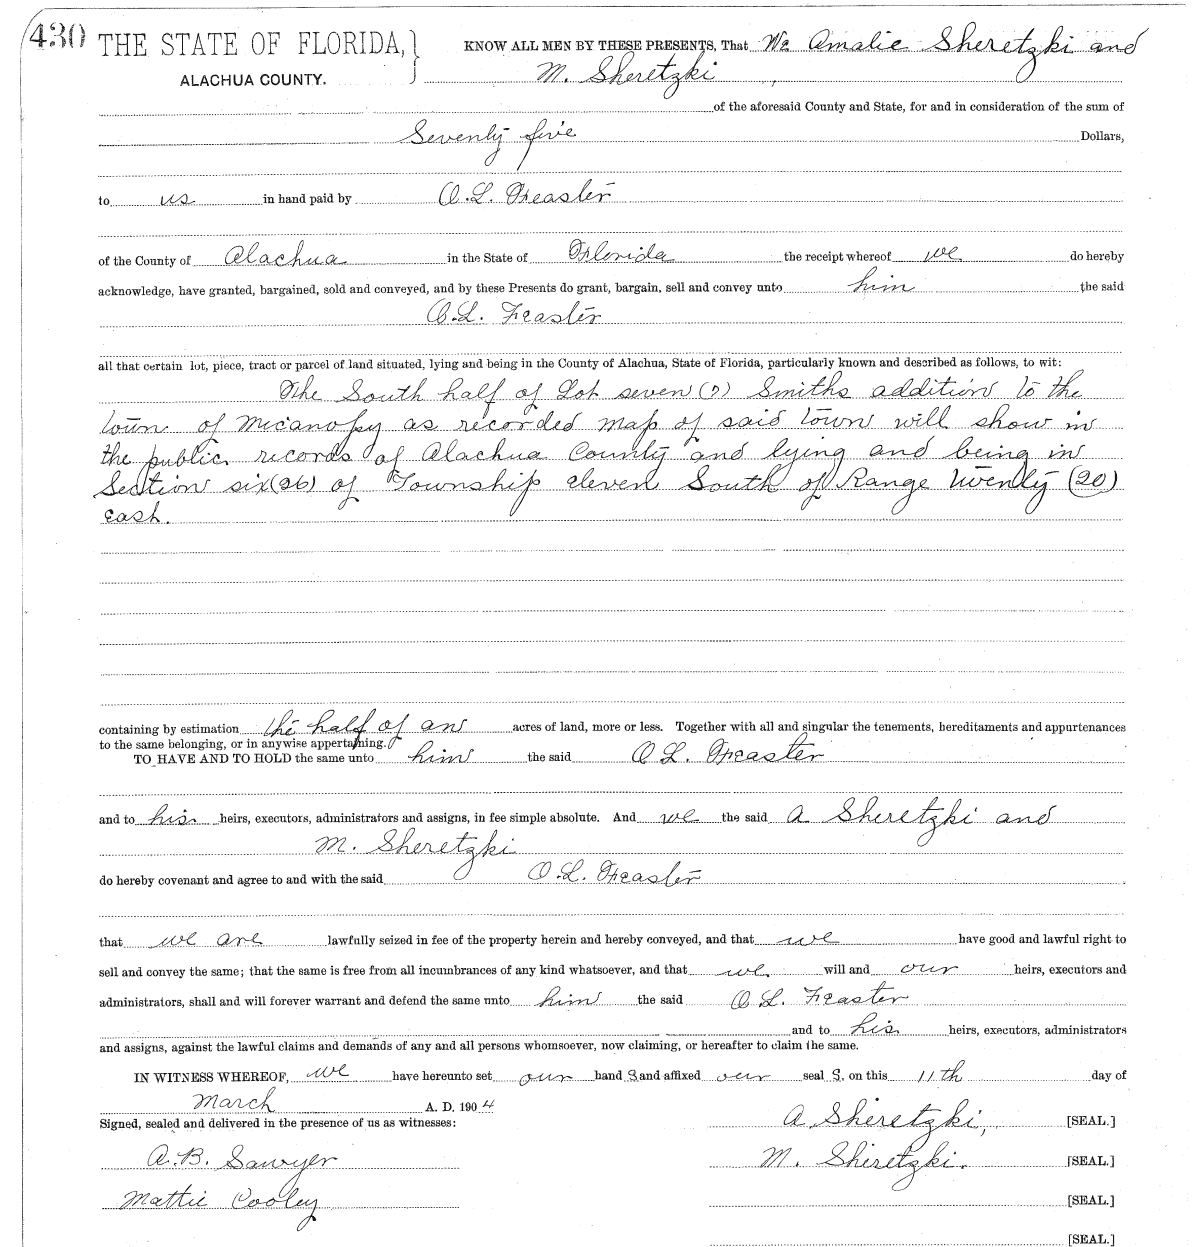 430 THE STATE OF FLORIDA, KNOW ALL MEN BY THESE PRESENTS, That We Amalie Sheretzki and
ALACHUA COUNTY. M. Sheretzki
of the aforesaid County and State, for and in consideration of the sum of
Seventy five Dollars,
to us in hand paid by O.L. Feaster
of the County of Alachua in the State of Florida the receipt whereof we do hereby
acknowledge, have granted, bargained, sold and conveyed, and by these Presents do grant, bargain, sell and convey unto him the said
O.L. Feaster
all that certain lot, piece, tract or parcel of land situated, lying and being in the County of Alachua, State of Florida, particularly known and described as follows, to wit:
The South half of Lot seven (7) Smiths addition to the
town of Micanopy as recorded map of said town will show in
the public records of Alachua County and lying and being in
Section six (26) of Township eleven South of Range twenty (20)
east.
containing by estimation the half of an acres of land, more or less. Together with all and singular the tenements, hereditaments and appurtenances
to the same belonging, or in anywise appertaining.
TO HAVE AND TO HOLD the same unto him the said O L. Feaster
and to his heirs, executors, administrators and assigns, in fee simple absolute. And we the said A Sheretzki and
M. Sheretzki
do hereby covenant and agree to and with the said O.L. Feaster
that we are lawfully seized in fee of the property herein and hereby conveyed, and that we have good and lawful right to
sell and convey the same; that the same is free from all incumbrances of any kind whatsoever, and that we will and our heirs, executors and
administrators, shall and will forever warrant and defend the same unto him the said O L Feaster
and to his heirs, executors, administrators
and assigns, against the lawful claims and demands of any and all persons whomsoever, now claiming, or hereafter to claim the same.
IN WITNESS WHEREOF, we have hereunto set our hand S and affixed our seal S. on this 11th day of
March A. D. 1904
Signed, sealed and delivered in the presence of us as witnesses: A Sheretzki, [SEAL.]
A.B. Sawyer M. Sheretzki. [SEAL.]
Mattie Cooley [SEAL.]
[SEAL.]